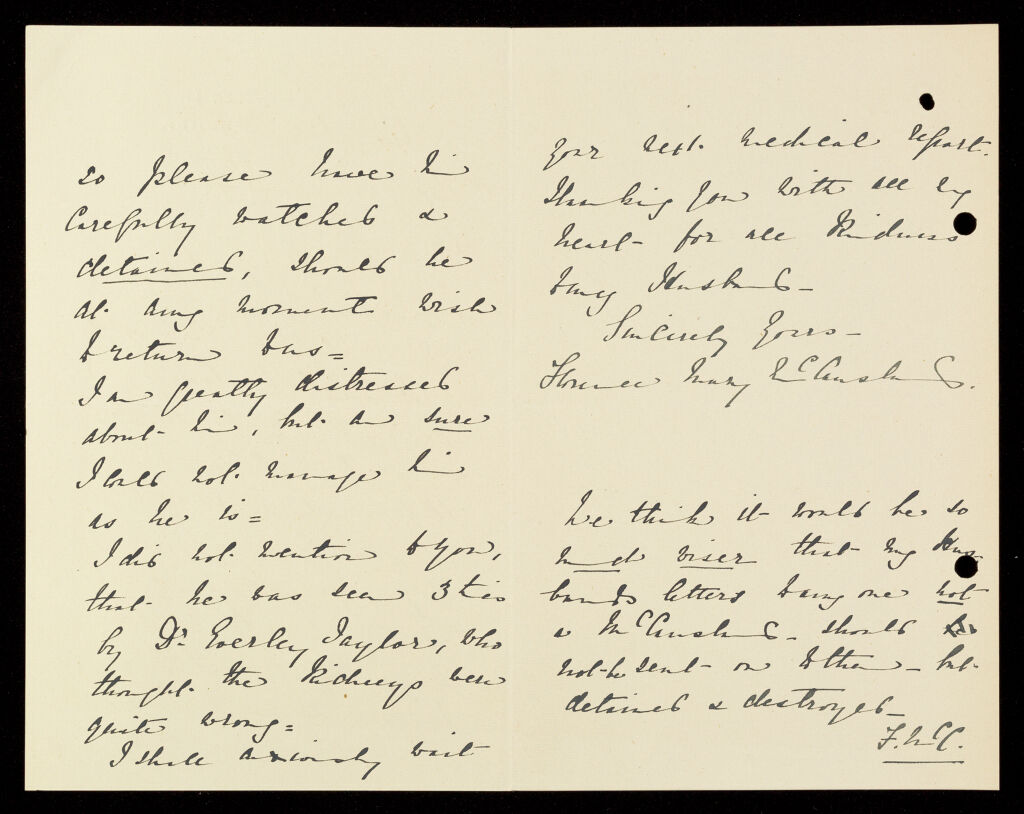 so please have him
carefully watched &
detained, should he
at any moment wish
to return to us =
I am greatly distressed
about him, but am sure
I could not manage him
as he is =
I did not mention to you,
that he was seen 3 times
by Dr Everley Taylor, who
thought the Kidneys were
quite wrong =
I shall anxiously wait
your next medical report.
Thanking you with all my
heart for all kindness
to my Husband -
Sincerely yours -
Florence Mary McCausland.
We think it would be so
much wiser that my Hus-
bands letters to any one not
a McCausland - should
not be sent on to them - but
detained & destroyed -
F. McC.